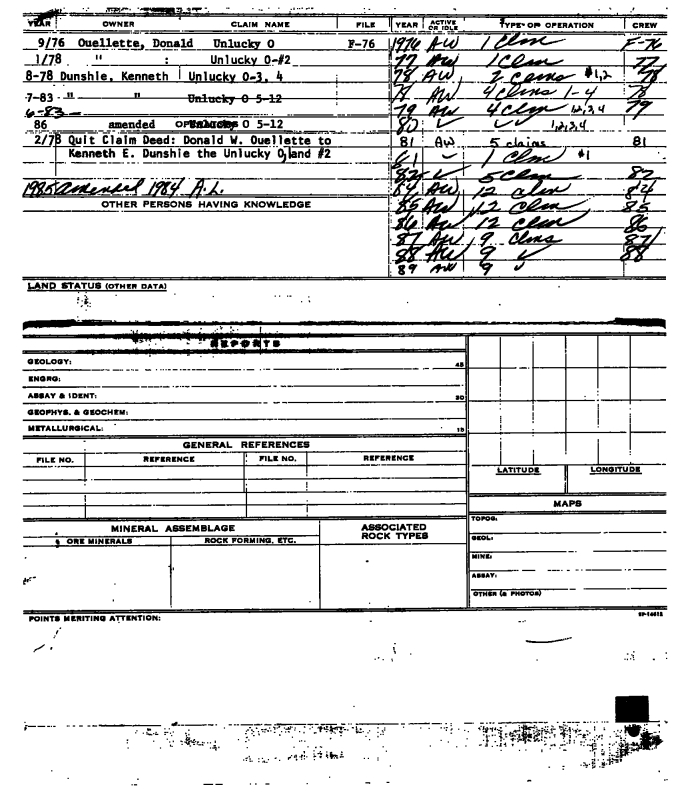 YEAR OWNER CLAIM NAME FILE YEAR ACTIVE OR IDLE TYPE OF OPERATION CREW
9/76 Ouellette, Donald Unlucky O F-76 1976 AW 1 Clm F-76
1/78 " : Unlucky O-#2 77 AW 1 Clm 77
8-78 Dunshie, Kenneth Unlucky O-3, 4 78 AW 2 Cams #1,2 78
7-83 " " Unlucky O 5-12 78 AW 4 Clms 1-4 78
6-83 — 79 AW 4 Clm 1,2,3,4 79
86 amended O 5-12 80 ✓ ✓ 1,2,3,4
2/78 Quit Claim Deed: Donald W. Ouellette to 81 AW 5 claims 81
Kenneth E. Dunshie the Unlucky O, and #2 81 ✓ 1 Clm #1
82 ✓ 5 Clm 82
1985 amended 1984 A.L. 84 AW 12 Clm 84
OTHER PERSONS HAVING KNOWLEDGE 85 AW 12 Clm 85
86 AW 12 Clm 86
87 AW 9 Clms 87
88 AW 9 ✓ 88
89 AW 9 ✓
LAND STATUS (OTHER DATA)
REPORTS
GEOLOGY: 45
ENGRG:
ASSAY & IDENT: 30
GEOPHYS. & GEOCHEM:
METALLURGICAL: 15
GENERAL REFERENCES
FILE NO. REFERENCE FILE NO. REFERENCE
LATITUDE LONGITUDE
MAPS
MINERAL ASSEMBLAGE ASSOCIATED ROCK TYPES TOPOG:
ORE MINERALS ROCK FORMING, ETC. GEOL:
MINE:
ASSAY:
OTHER (& PHOTOS)
POINTS MERITING ATTENTION: